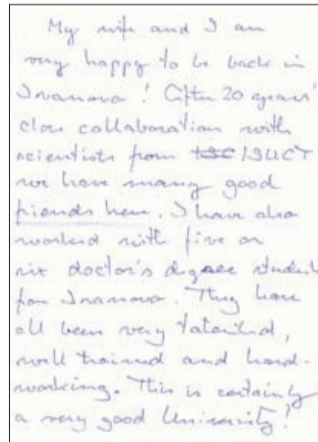 My wife and I am
very happy to be back in
Ivanovo! After 20 years'
close collaboration with
scientists from ISUCT
we have many good
friends here. I have also
worked with five or
six doctor's degree students
from Ivanovo. They have
all been very talented,
well trained and hard-
working. This is certainly
a very good University!